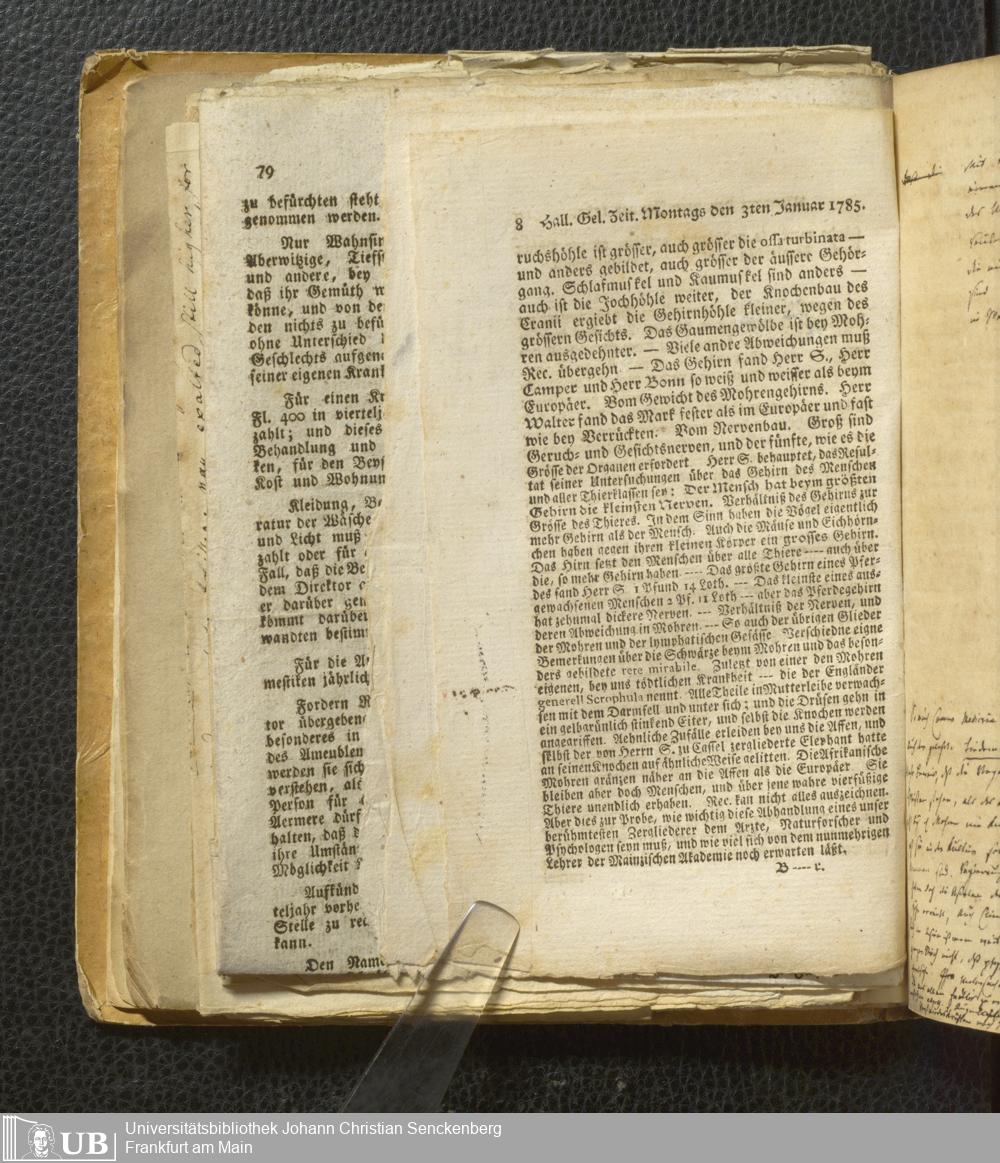 79
zu befürchten steht
genommen werden.
Nur Wahnsin
Aberwitzige, Tiefs
und andere, bey
daß ihr Gemüth
könne, und von de
den nichts zu befü
ohne Unterschied
Geschlechts aufgen
seiner eigenen Krank
Für einen Kr
Fl. 400 in viertelj
zahlt; und dieses
Behandlung und
ken, für den Beys
Kost und Wohnun
Kleidung, B
ratur der Wäsche
und Licht muß
zahlt oder für
Fall, daß die Be
dem Direktor
er darüber gen
kömmt darüber
wandten bestim
Für die
mestiken jährlich
Fordern R
tor übergeben
besonderes in
des Ameublen
werden sie sich
verstehen, als
Person für
Aermere dürf
halten, daß
ihre Umstän
Möglichkeit
Aufkünd
teljahr vorhe
Stelle zu rec
kann.
Den Name
8 Hall. Gel. Zeit. Montags den 3ten Januar 1785.
ruchshöhle ist grösser, auch grösser die ossa turbinata —
und anders gebildet, auch grösser der äussere Gehör-
gang. Schlafmuskel und Kaumuskel sind anders —
auch ist die Jochhöhle weiter, der Knochenbau des
Cranii ergiebt die Gehirnhöhle kleiner, wegen des
grössern Gesichts. Das Gaumengewölbe ist bey Moh-
ren ausgedehnter. — Viele andre Abweichungen muß
Rec. übergehn — Das Gehirn fand Herr S., Herr
Camper und Herr Bonn so weiß und weisser als beym
Europäer. Vom Gewicht des Mohrengehirns. Herr
Walter fand das Mark fester als im Europäer und fast
wie bey Verrückten. Vom Nervenbau. Groß sind
Geruch- und Gesichtsnerven, und der fünfte, wie es die
Grösse der Organen erfordert. Herr S. behauptet, das Resul-
tat seiner Untersuchungen über das Gehirn des Menschen
und aller Thierklassen sey: Der Mensch hat beym größten
Gehirn die kleinsten Nerven. Verhältniß des Gehirns zur
Grösse des Thieres. In dem Sinn haben die Vögel eigentlich
mehr Gehirn als der Mensch. Auch die Mäuse und Eichhörn-
chen haben gegen ihren kleinen Körper ein grosses Gehirn.
Das Hirn setzt den Menschen über alle Thiere ---- auch über
die, so mehr Gehirn haben. ---- Das größte Gehirn eines Pfer-
des fand Herr S. 1 Pfund 14 Loth. --- Das kleinste eines aus-
gewachsenen Menschen 2 Pf. 11 Loth --- aber das Pferdegehirn
hat zehnmal dickere Nerven. --- Verhältniß der Nerven, und
deren Abweichung in Mohren. --- So auch der übrigen Glieder
der Mohren und der lymphatischen Gefässe. Verschiedne eigne
Bemerkungen über die Schwärze beym Mohren und das beson-
ders gebildete rete mirabile. Zuletzt von einer den Mohren
eigenen, bey uns tödtlichen Krankheit --- die der Engländer
generell Scrophula nennt. Alle Theile in Mutterleibe verwach-
sen mit dem Darmfell und unter sich; und die Drüsen gehn in
ein gelbgrünlich stinkend Eiter, und selbst die Knochen werden
angegriffen. Aehnliche Zufälle erleiden bey uns die Affen, und
selbst der von Herrn S. zu Cassel zergliederte Elephant hatte
an seinen Knochen auf ähnliche Weise gelitten. Die Afrikanische
Mohren gränzen näher an die Affen als die Europäer. Sie
bleiben aber doch Menschen, und über jene wahre vierfüßige
Thiere unendlich erhaben. Rec. kan nicht alles auszeichnen.
Aber dies zur Probe, wie wichtig diese Abhandlung eines unser
berühmtesten Zergliederer dem Arzte, Naturforscher und
Psychologen seyn muß, und wie viel sich von dem nunmehrigen
Lehrer der Mainzischen Akademie noch erwarten läßt.
B ---- r.
UB Universitätsbibliothek Johann Christian Senckenberg
Frankfurt am Main